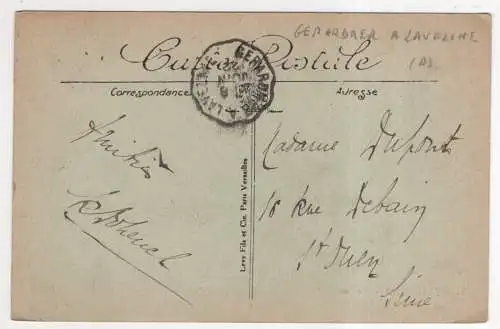 GERARDMER A LAVELINE
Carte Postale
GERARDMER A LAVELINE
Correspondance
Adresse
Amitiés
Madame Dupont
18 Rue Debain
St Ouen
Seine
Levy Fils et Cie, Paris Versailles